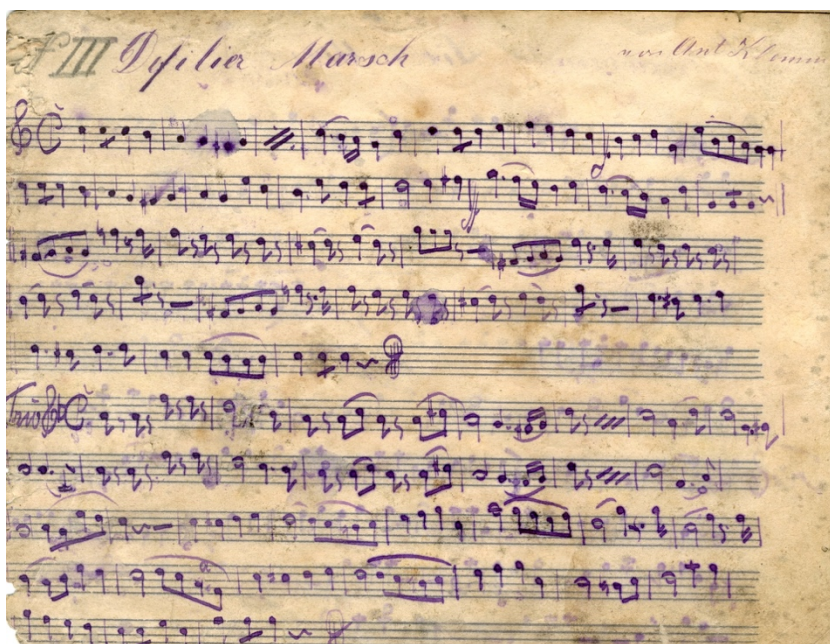 N III Defilier Marsch von Ant
Trio